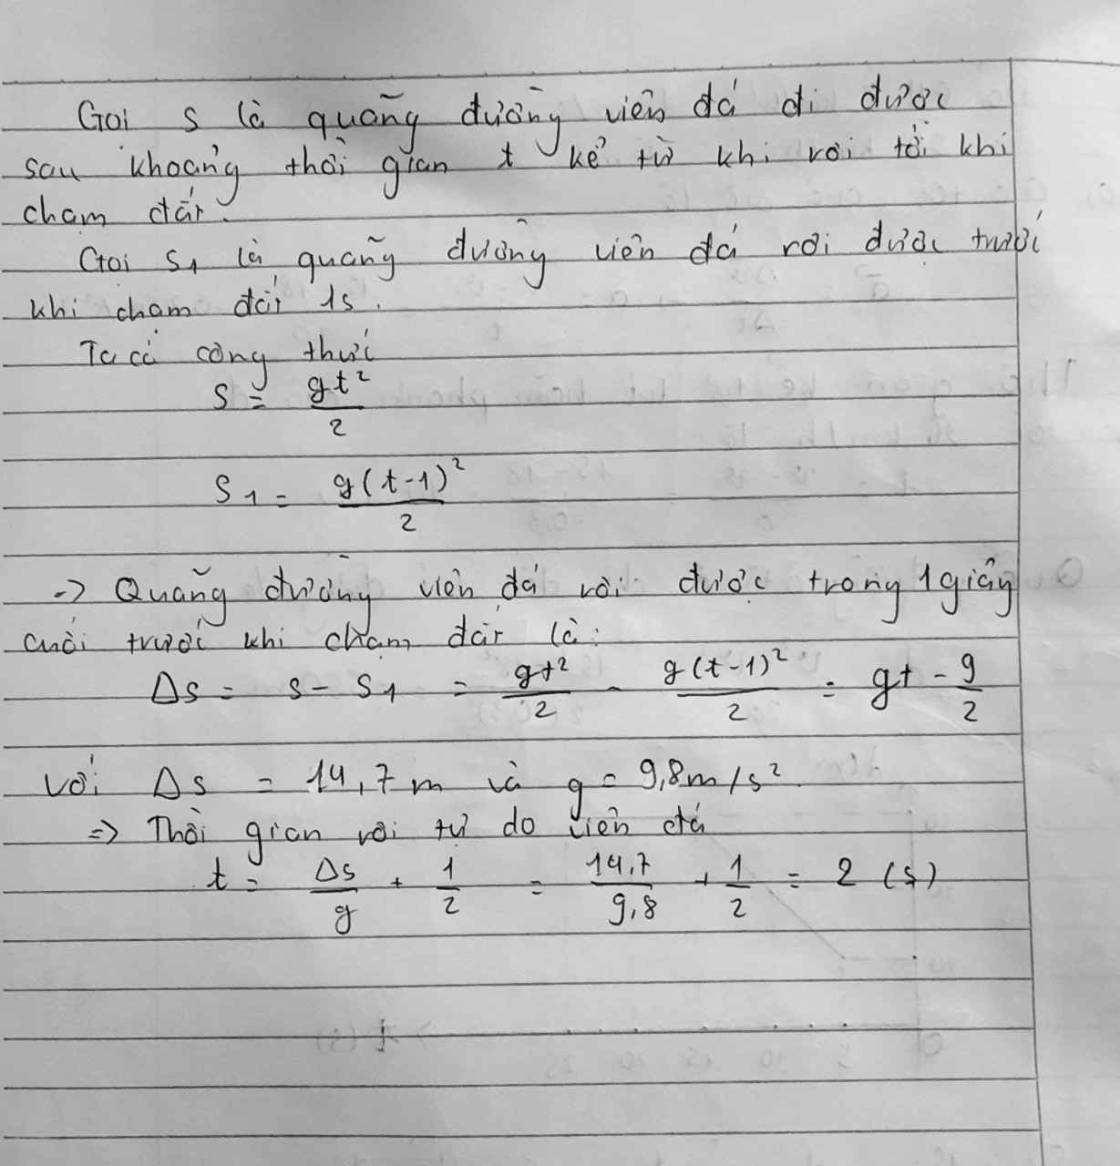 Gọi s là quãng đường viên đá đi được
sau khoảng thời gian t kể từ khi rơi tới khi
chạm đất.
Gọi s₁ là quãng đường viên đá rơi được trước
khi chạm đất 1s.
Ta có công thức
s = gt²/2
s₁ = g(t-1)²/2
-> Quãng đường viên đá rơi được trong 1 giây
cuối trước khi chạm đất là:
Δs = s - s₁ = gt²/2 - g(t-1)²/2 = gt - g/2
Với Δs = 14,7m và g = 9,8m/s².
=> Thời gian rơi tự do viên đá
t = Δs/g + 1/2 = 14,7/9,8 + 1/2 = 2 (s)